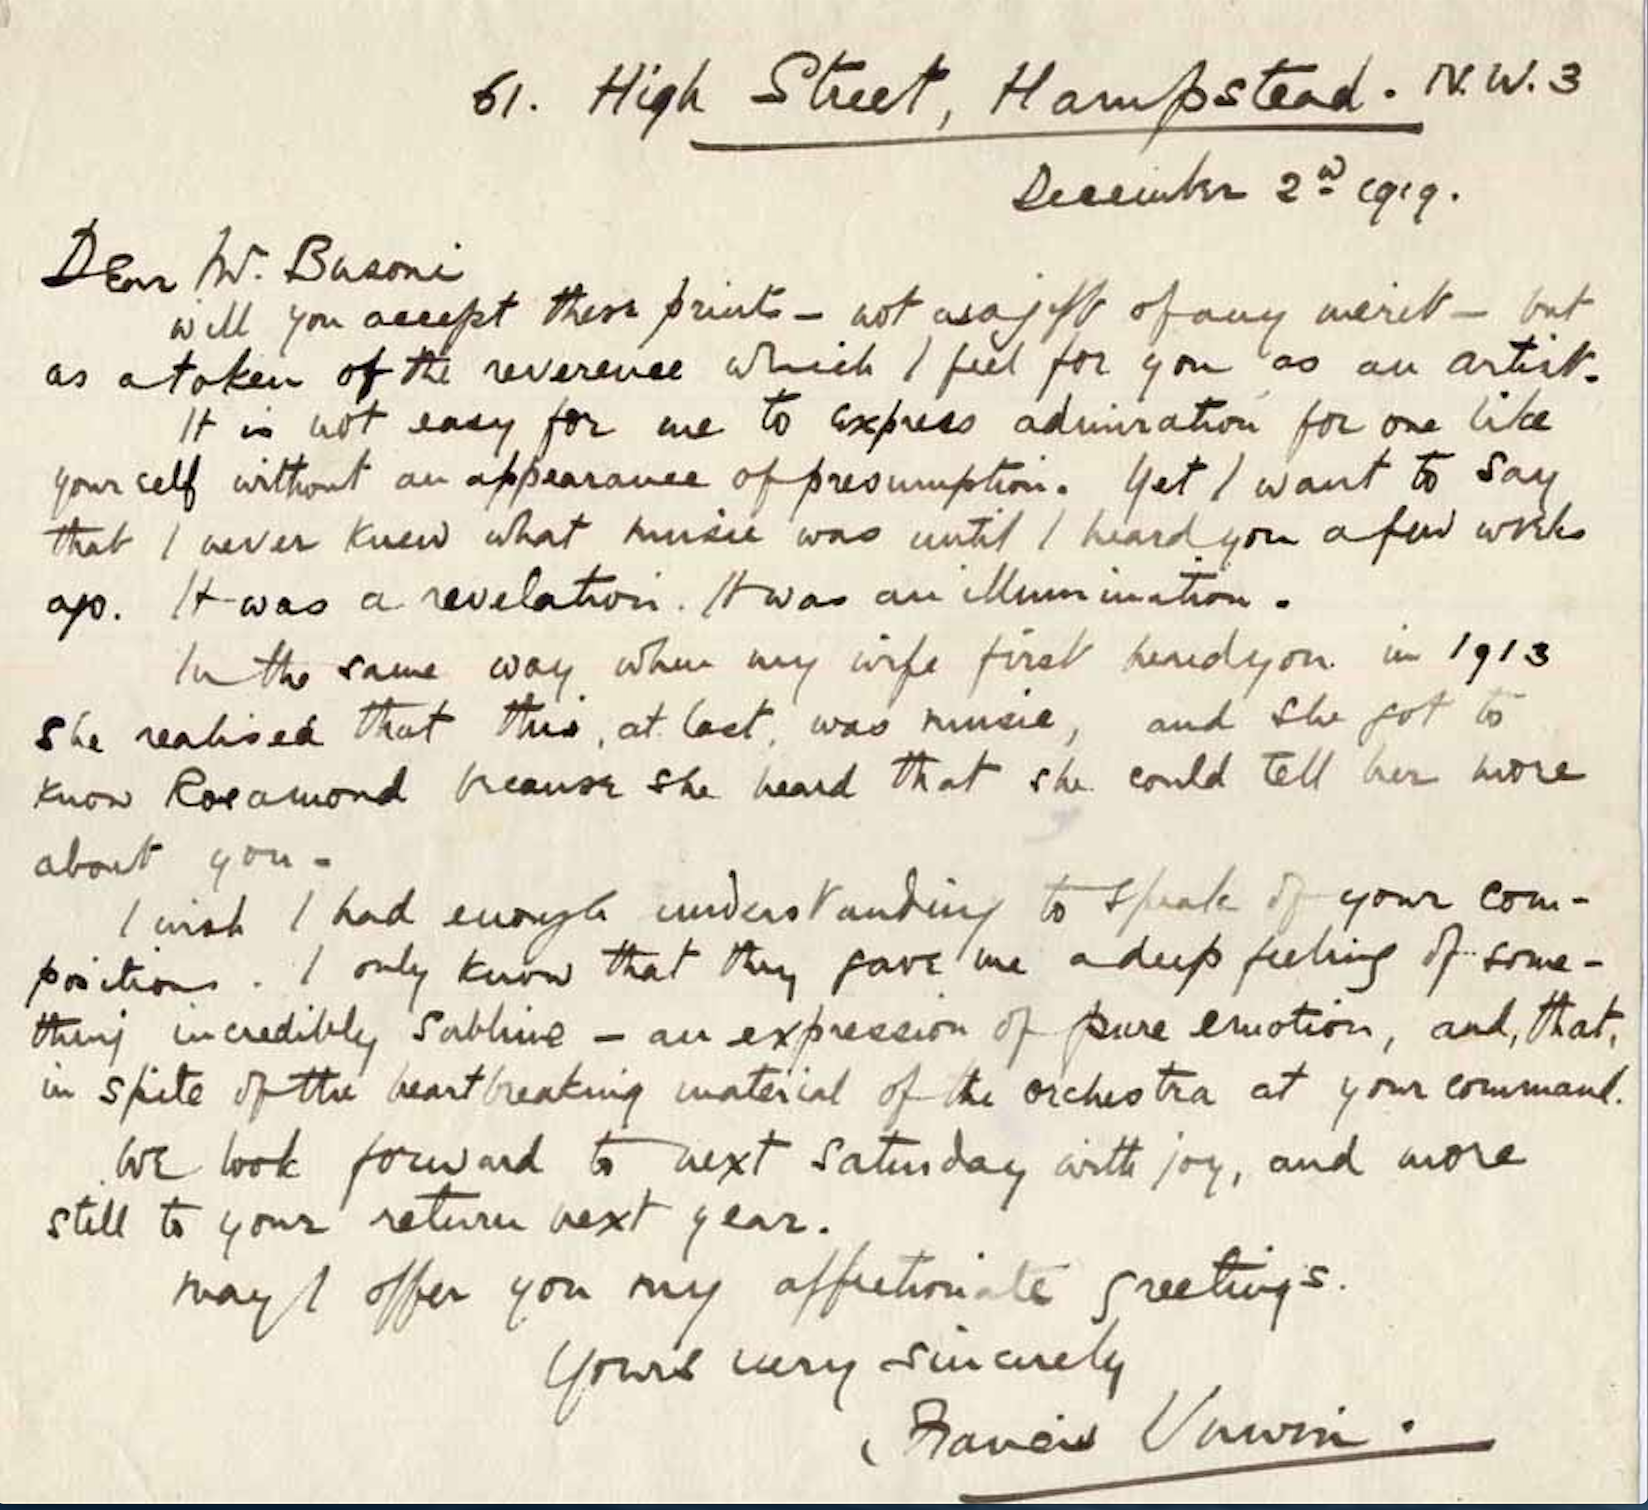 61. High Street, Hampstead. N.W.3
December 2nd 1919.
Dear Mr. Busoni
will you accept these prints – not as a gift of any merit – but
as a token of the reverence which I feel for you as an artist.
It is not easy for me to express admiration for one like
yourself without an appearance of presumption. Yet I want to say
that I never knew what music was until I heard you a few weeks
ago. It was a revelation. It was an illumination.
In the same way when my wife first heard you in 1913
she realised that this, at last, was music, and she got to
know Rosamond because she heard that she could tell her more
about you –
I wish I had enough understanding to speak of your com-
positions. I only know that they gave me a deep feeling of some-
thing incredibly sublime – an expression of pure emotion, and, that,
in spite of the heartbreaking material of the orchestra at your command.
We look forward to next Saturday with joy, and more
still to your return next year.
May I offer you my affectionate greetings.
Yours very sincerely
Francis Unwin.